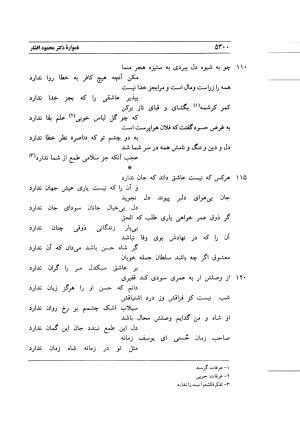 ۵۳۰۰
نامواره دکتر محمود افشار
۱۱۰ چو به شیوه دل ببردی به ستیزه هجر منما
مکن آنچه هیچ کافر به خطا روا ندارد
همه را زر است و مال است و مرا بجز خدا نیست
بپذیر عاشقی را که بجز خدا ندارد
کمر کرشمه(۱) بگشای و قبای ناز برکن
که چو گل لباس خوبی(۲) علم بقا ندارد
به غرض حسود گفتت که فلان هواپرست است
به دو چشم تو که ناصره نظر خطا ندارد
دل و دین و ننگ و نامش همه در سر شما شد
عجب آنکه جز سلامی طمع از شما ندارد(۳)
*
۱۱۵ هرکس که نیست عاشق داند که جان ندارد
و آن را که نیست یاری عیش جهان ندارد
جان بی‌هوای دلبر پیوند دل نجوید
دل بی‌خیال جانان سودای جان ندارد
گر ذوق عمر خواهی یاری طلب که الحق
بی‌یار زندگانی ذوقی چنان ندارد
آن را که در نهادش بوی وفا نباشد
گر شاه حسن باشد می‌دان که آن ندارد
معشوق اگر چه باشد سلطان جمله خوبان
بر عاشق سبکدل سر را گران ندارد
۱۲۰ از وصلش ار به عمری سودی کند فقیری
دانم که حسن او را هرگز زیان ندارد
شب نیست کز فراقش وز درد اشتیاقش
سیلاب اشک چشمم بر رخ روان ندارد
او شاه و من گدایم وصلش محال باشد
دل این طمع نبندد جان این گمان ندارد
صاحب زمان حسنی ای یوسف زمانه
مثل تو در زمانه شاه زمان ندارد
۱- عرفات: گرسنه
۲- عرفات: جویی
۳- تذکرةالشعرا بیت را ندارد